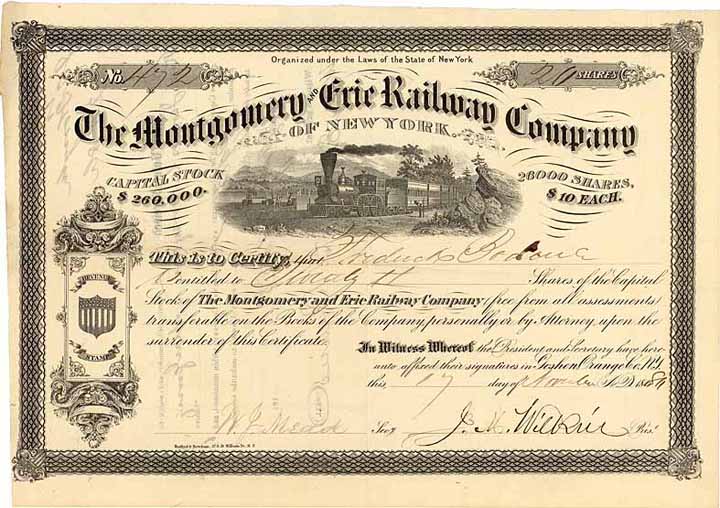 Organized under the Laws of the State of New York
No. 472
20 SHARES
The Montgomery AND Erie Railway Company
OF NEW YORK.
CAPITAL STOCK
$ 260,000.
26000 SHARES,
$ 10 EACH.
This is to Certify, that Fredrick
is entitled to Shares of the Capital
Stock of The Montgomery and Erie Railway Company (free from all assessments)
transferable on the Books of the Company, personally or by Attorney, upon the
surrender of this Certificate.
REVENUE
STAMP
In Witness Whereof the President and Secretary have here
unto affixed their signatures in Goshen Orange Co. N.Y.
this 17 day of November A.D. 18
W. J. Mead Secy.
J. M. Wilkin Pres.